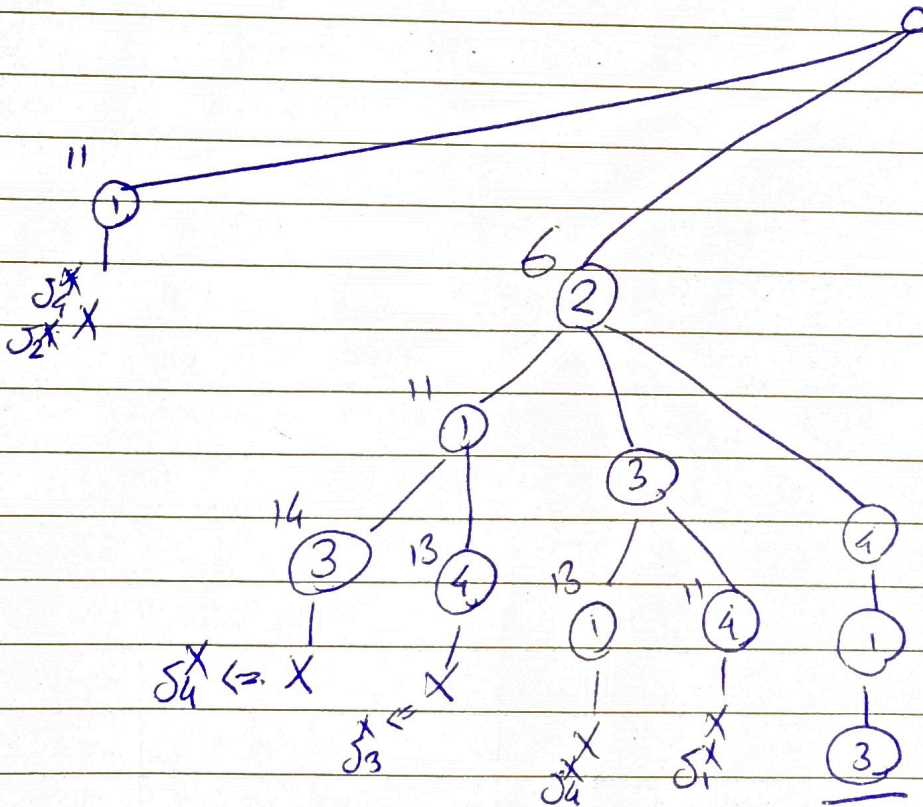 11
1
J₄ X
J₂ X X
6
2
11
1
3
4
14
3
13
4
13
1
11
4
1
J₄ X <= X
X
J₃ X <=
X
J₄ X
X
J₁ X
3